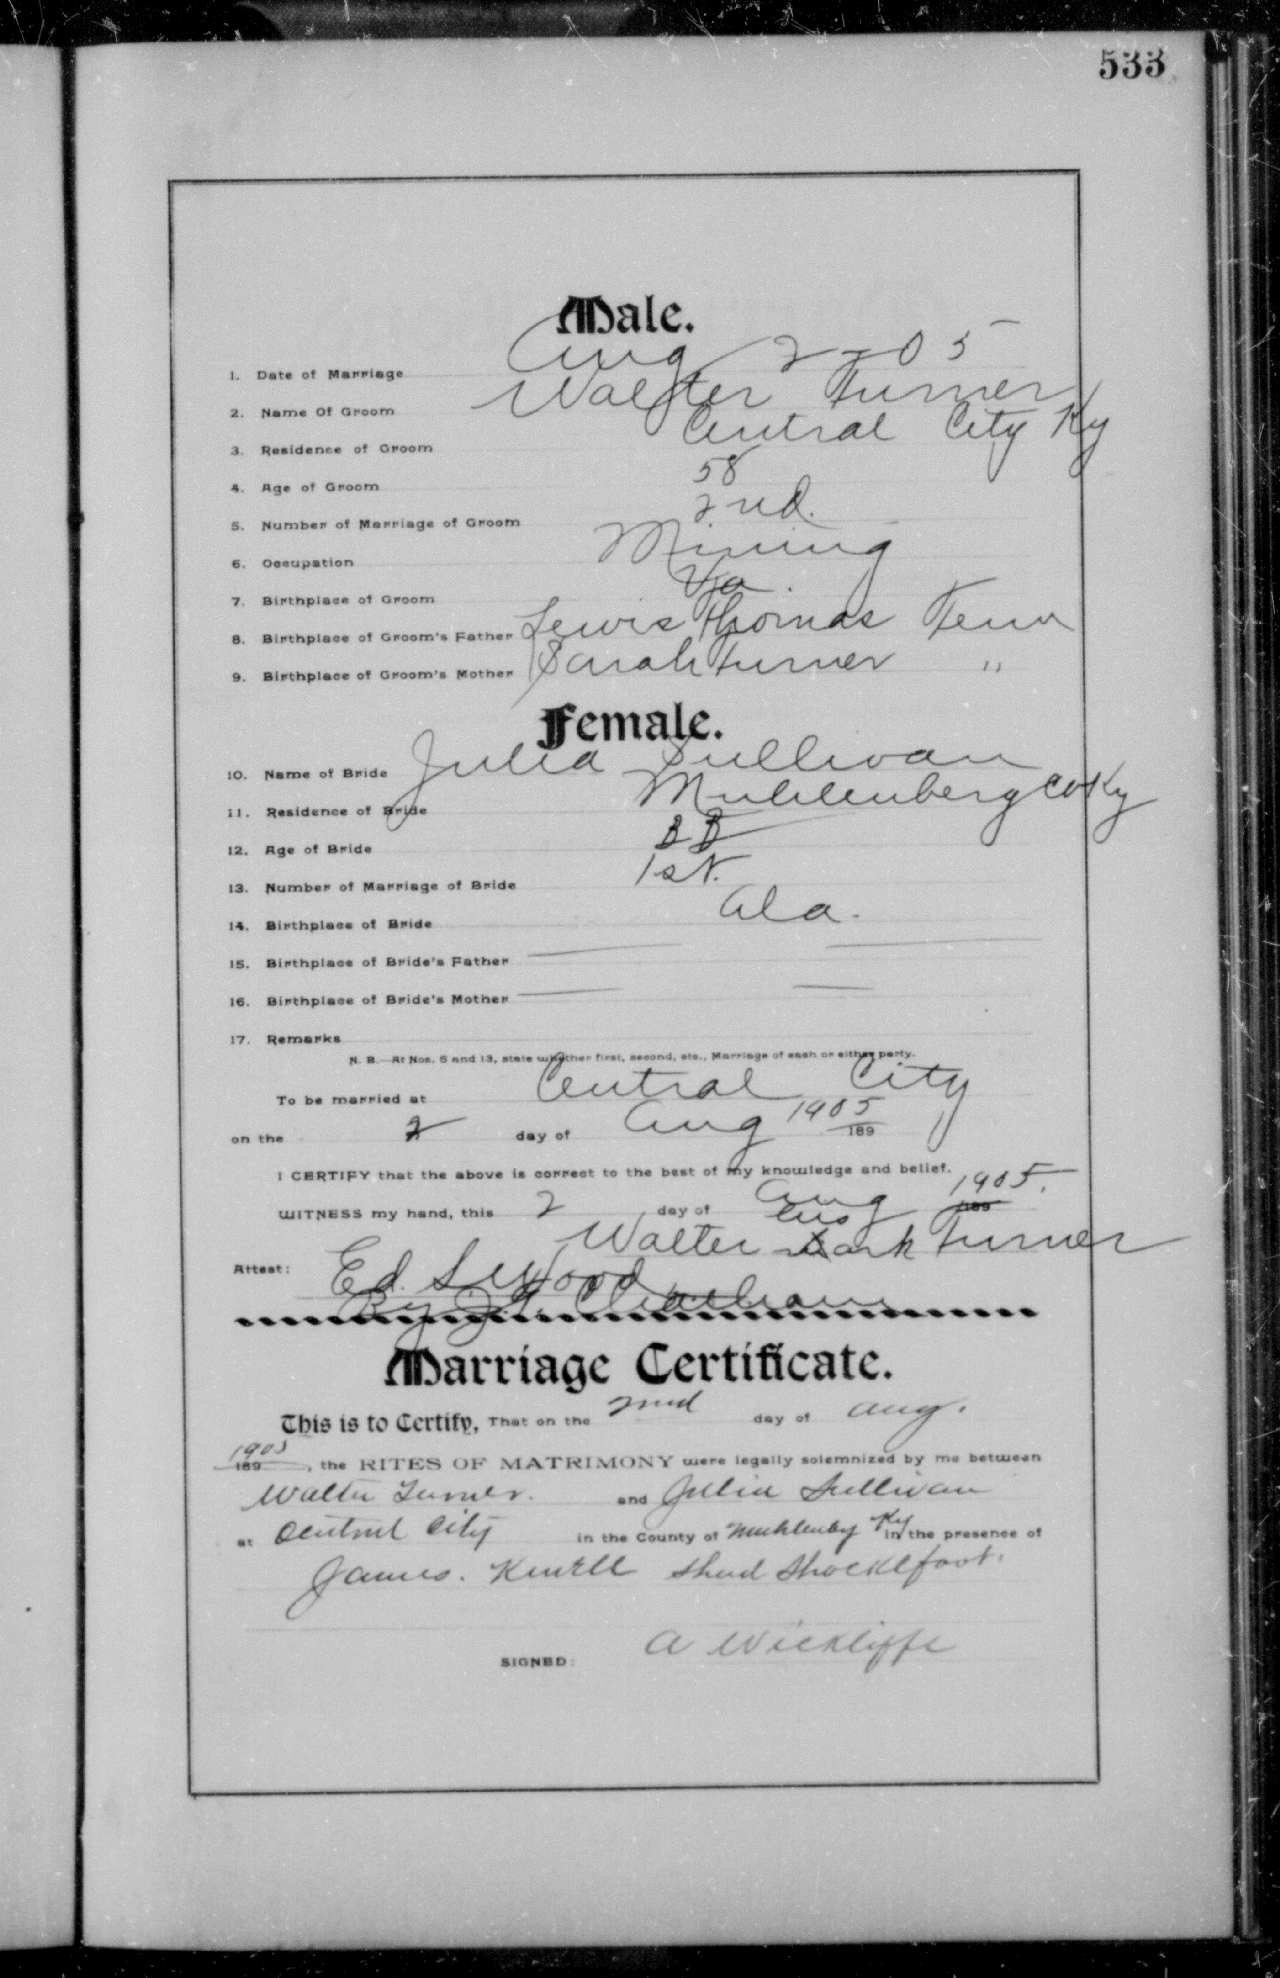 533
Male.
1. Date of Marriage Aug 2 - 05
2. Name Of Groom Walter Turner
3. Residence of Groom Central City Ky
4. Age of Groom 58
5. Number of Marriage of Groom 2nd.
6. Occupation Mining
7. Birthplace of Groom Va
8. Birthplace of Groom's Father Lewis Thomas Tenn
9. Birthplace of Groom's Mother Sarah Turner "
Female.
10. Name of Bride Julia Sullivan
11. Residence of Bride Muhlenberg Co Ky
12. Age of Bride
13. Number of Marriage of Bride 1st.
14. Birthplace of Bride Ala.
15. Birthplace of Bride's Father
16. Birthplace of Bride's Mother
17. Remarks
N. B.—At Nos. 5 and 13, state whether first, second, etc., Marriage of each or either party.
To be married at Central City
on the 2 day of Aug 1905 189
I CERTIFY that the above is correct to the best of my knowledge and belief.
WITNESS my hand, this 2 day of Aug 1905. 189
his
Walter X mark Turner
Attest: Ed. S. Wood
By
Marriage Certificate.
This is to Certify, That on the 2nd day of Aug.
1905 189 , the RITES OF MATRIMONY were legally solemnized by me between
Walter Turner. and Julia Sullivan
at Central City in the County of Muhlenberg Ky in the presence of
James. Shocklefoot.
SIGNED: A Wickliffe